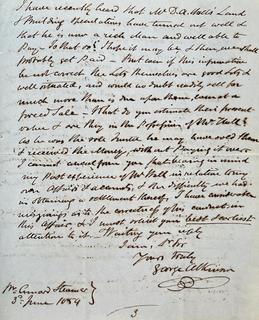 I have recently heard that Mr D.A. Hall's Land
& Building speculations have turned out well &
that he is now a rich man and well able to
Pay. Is that so? I hope it may be & then we shall
probably get Paid — But even if this information
be not correct the Lots themselves are good Lots &
well situated, and would no doubt readily sell for
much more than is due upon them, even at a
forced Sale — What do you estimate their present
value & are they in the possession of Mr Hall &
as he was the sole Trustee he may have sold them
& received the money, without Paying it over.
I cannot divest from you that bearing in mind
my Past experience of Mr Hall in relation to my
own affairs & accounts, & the difficulty we had
in obtaining a settlement thereof, I have considerable
misgivings as to the correctness of his conduct in
this affair, & I must solicit your best & earliest
attention to it — Waiting your reply
I am, Dr Sir
Yours truly
George Atkinson
Steamer
3rd June 1884
3